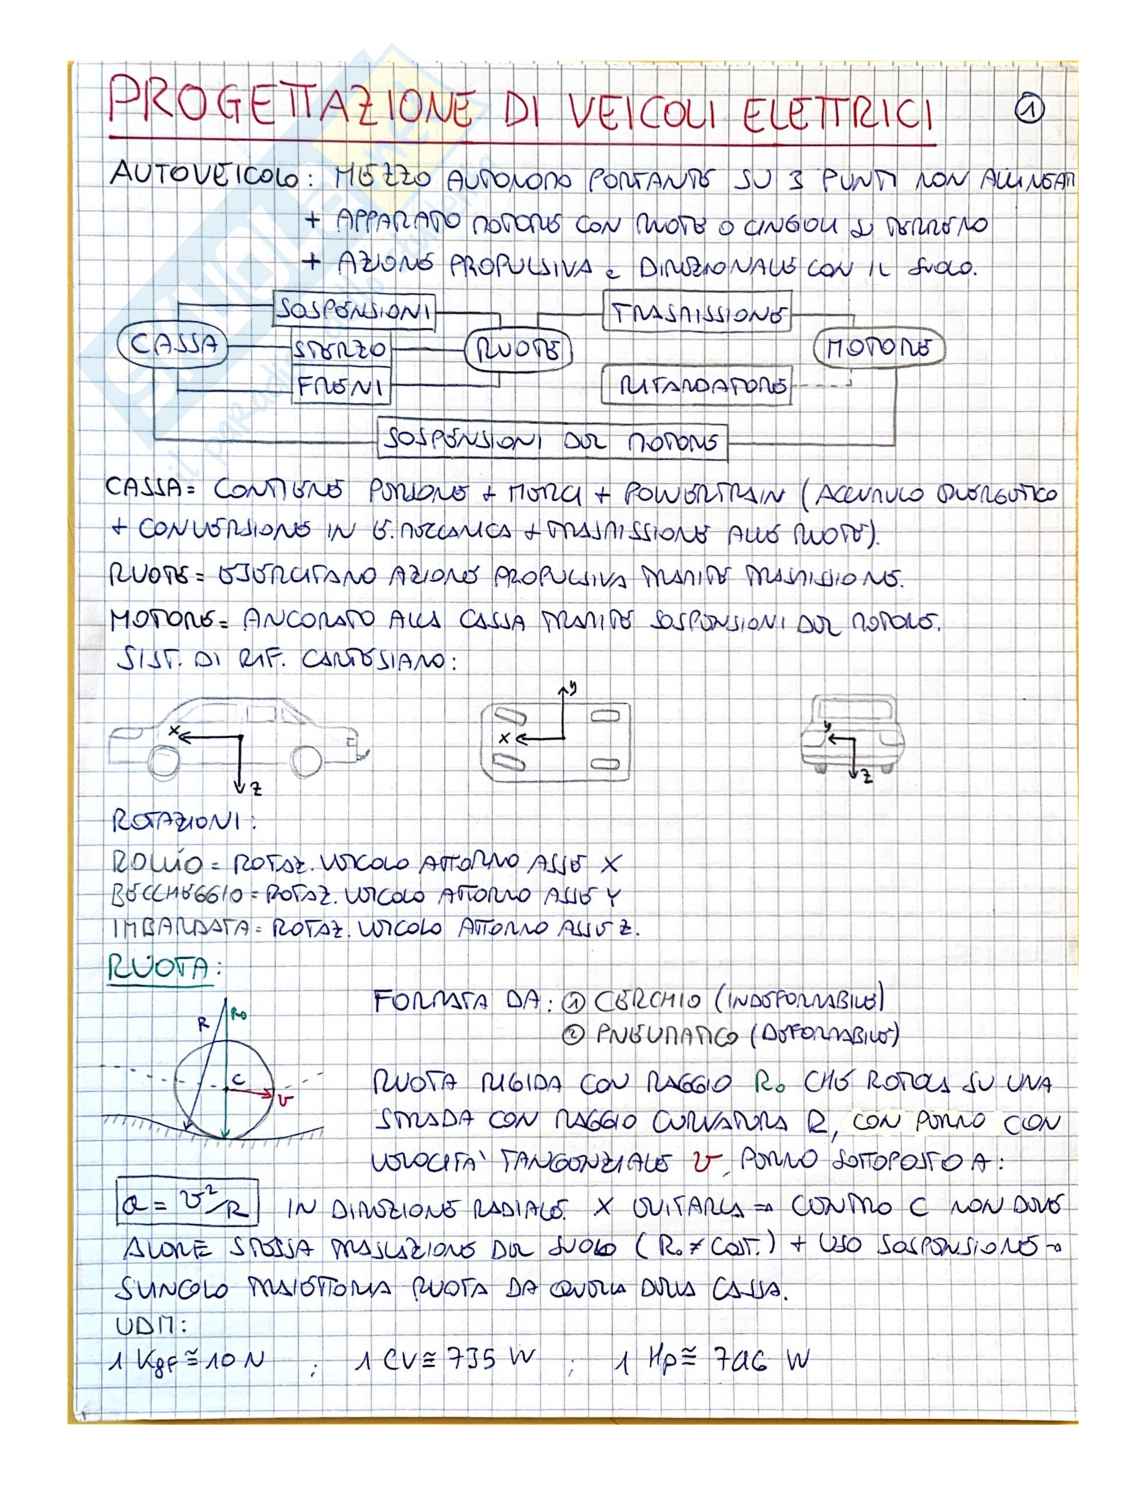 PROGETTAZIONE DI VEICOLI ELETTRICI
1
AUTOVEICOLO: MEZZO AUTONOMO PORTANTE SU 3 PUNTI NON ALLINEATI
+ APPARATO MOTORE CON RUOTE O CINGOLI SU TERRENO
+ AZIONE PROPULSIVA e DIREZIONALE CON IL SUOLO.
SOSPENSIONI
TRASMISSIONE
CASSA
STERZO
RUOTE
MOTORE
FRENI
RITARDATORE
SOSPENSIONI DEL MOTORE
CASSA = CONTIENE PERSONE + MERCI + POWERTRAIN (ACCUMULO ENERGETICO
+ CONVERSIONE IN E. MECCANICA + TRASMISSIONE ALLE RUOTE).
RUOTE = ESERCITANO AZIONE PROPULSIVA TRAMITE TRASMISSIONE.
MOTORE = ANCORATO ALLA CASSA TRAMITE SOSPENSIONI DEL MOTORE.
SIST. DI RIF. CARTESIANO:
x
z
x
y
y
z
ROTAZIONI:
ROLLIO = ROTAZ. VEICOLO ATTORNO ASSE X
BECCHEGGIO = ROTAZ. VEICOLO ATTORNO ASSE Y
IMBARDATA = ROTAZ. VEICOLO ATTORNO ASSE Z.
RUOTA:
R
R₀
C
v
FORMATA DA: ① CERCHIO (INDEFORMABILE)
② PNEUMATICO (DEFORMABILE)
RUOTA RIGIDA CON RAGGIO R₀ CHE ROTOLA SU UNA
STRADA CON RAGGIO CURVATURA R, CON PERNO CON
VELOCITA' TANGENZIALE v, PERNO SOTTOPOSTO A:
a = v²/R IN DIREZIONE RADIALE. X EVITARLA ⇒ CENTRO C NON DEVE
AVERE STESSA TRASLAZIONE DEL SUOLO (R₀ ≠ COST.) + USO SOSPENSIONE →
SVINCOLO TRAIETTORIA RUOTA DA QUELLA DELLA CASSA.
UDM:
1 Kgf ≅ 10 N ; 1 CV ≅ 735 W ; 1 Hp ≅ 746 W